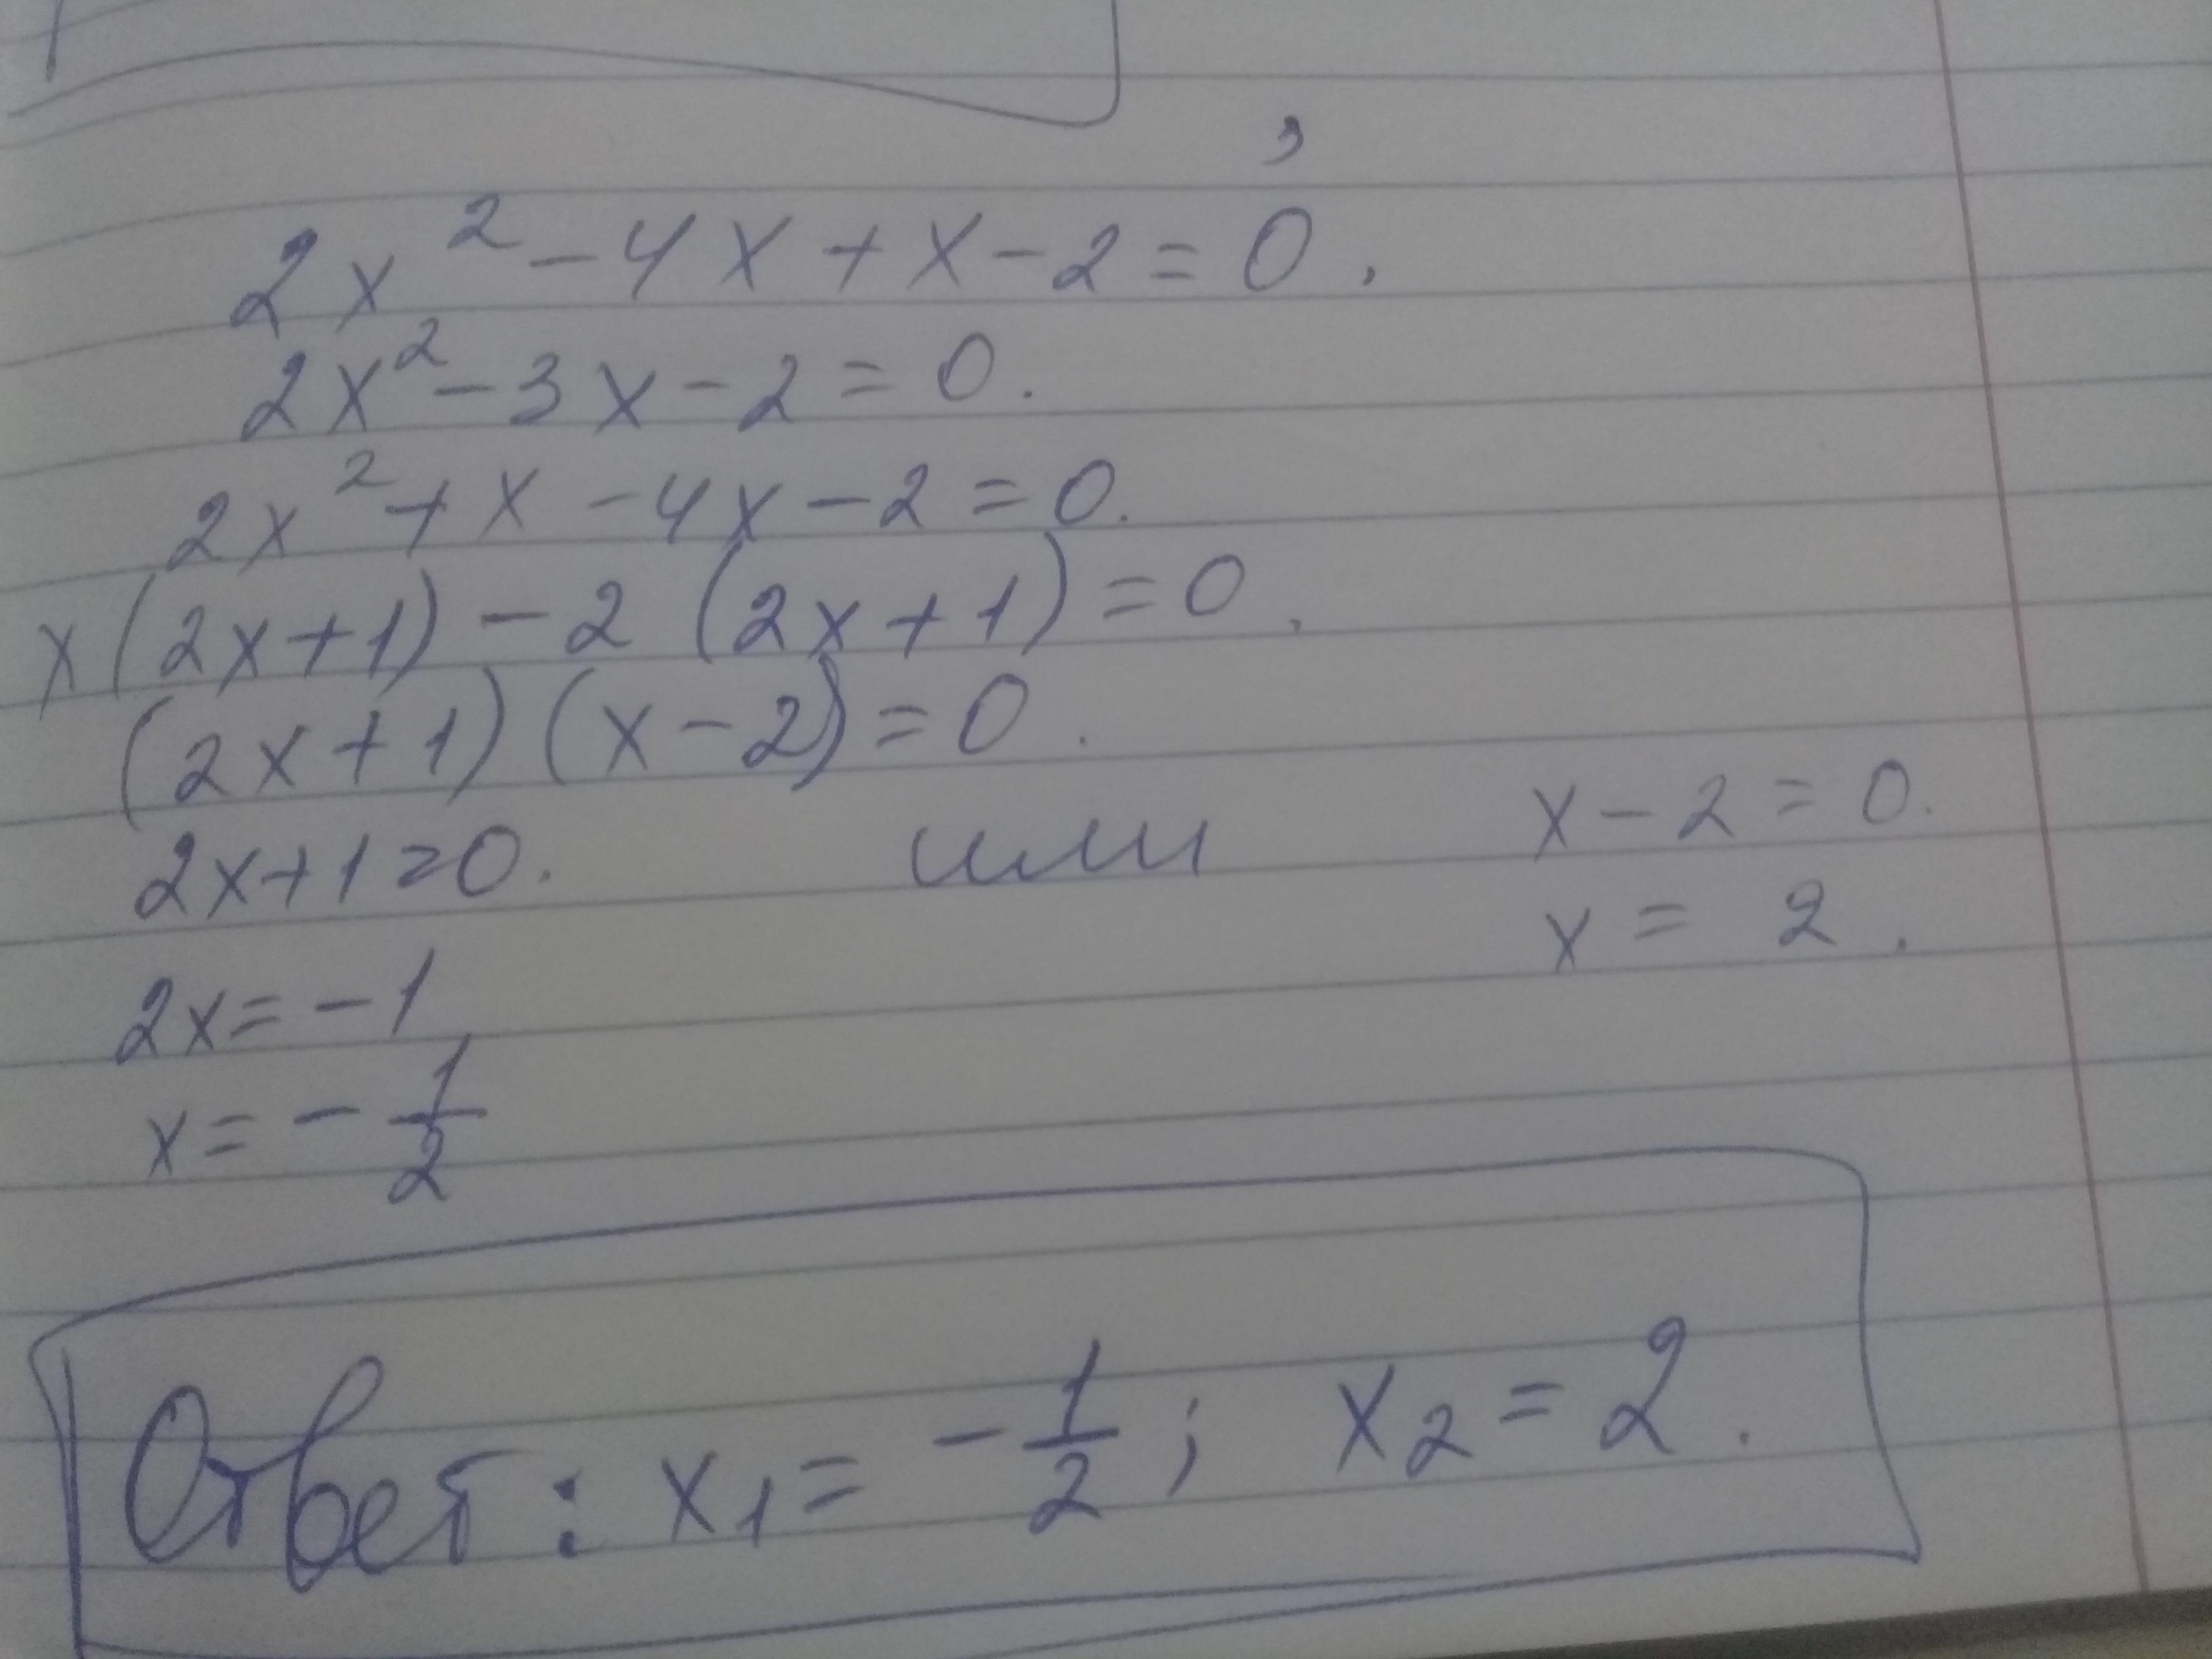 2x² - 4x + x - 2 = 0.
2x² - 3x - 2 = 0.
2x² + x - 4x - 2 = 0.
x(2x+1) - 2(2x+1) = 0.
(2x+1)(x-2) = 0.
2x+1=0. или x - 2 = 0.
x = 2.
2x = -1
x = - 1/2
Ответ: x₁ = - 1/2; x₂ = 2.